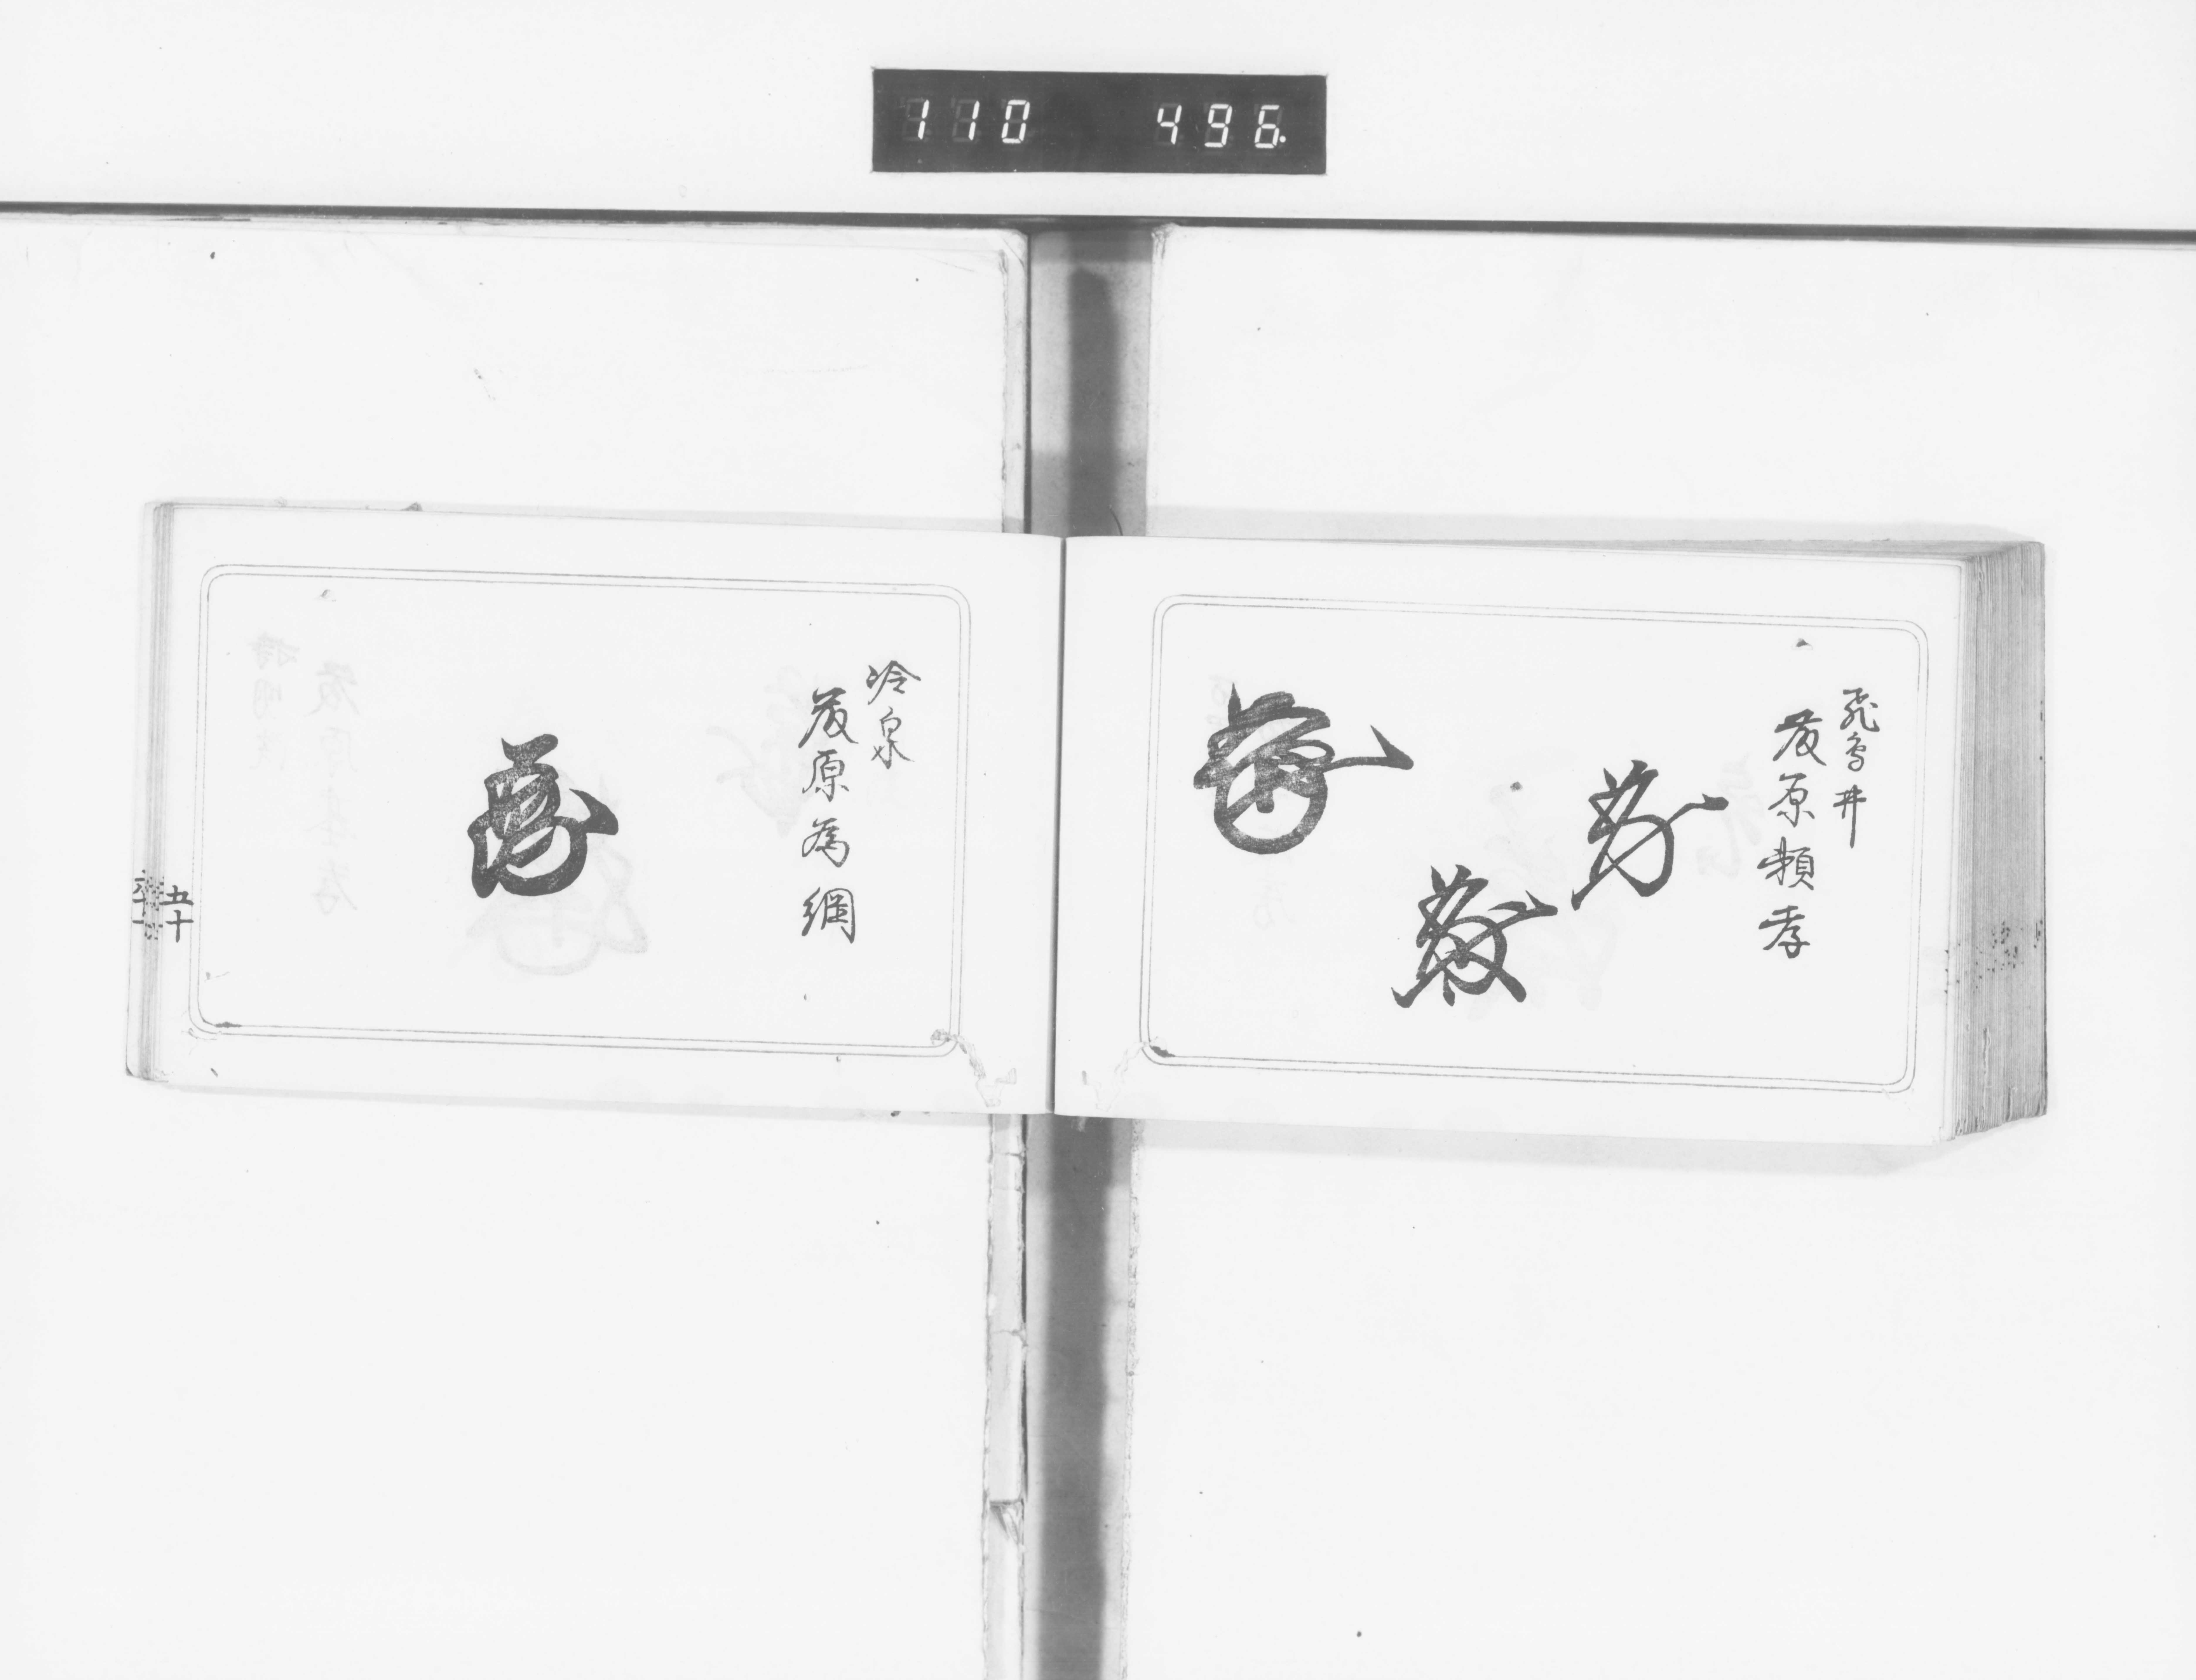 110 496.
飛鳥井
藤原頼孝
冷泉
藤原為綱
五十